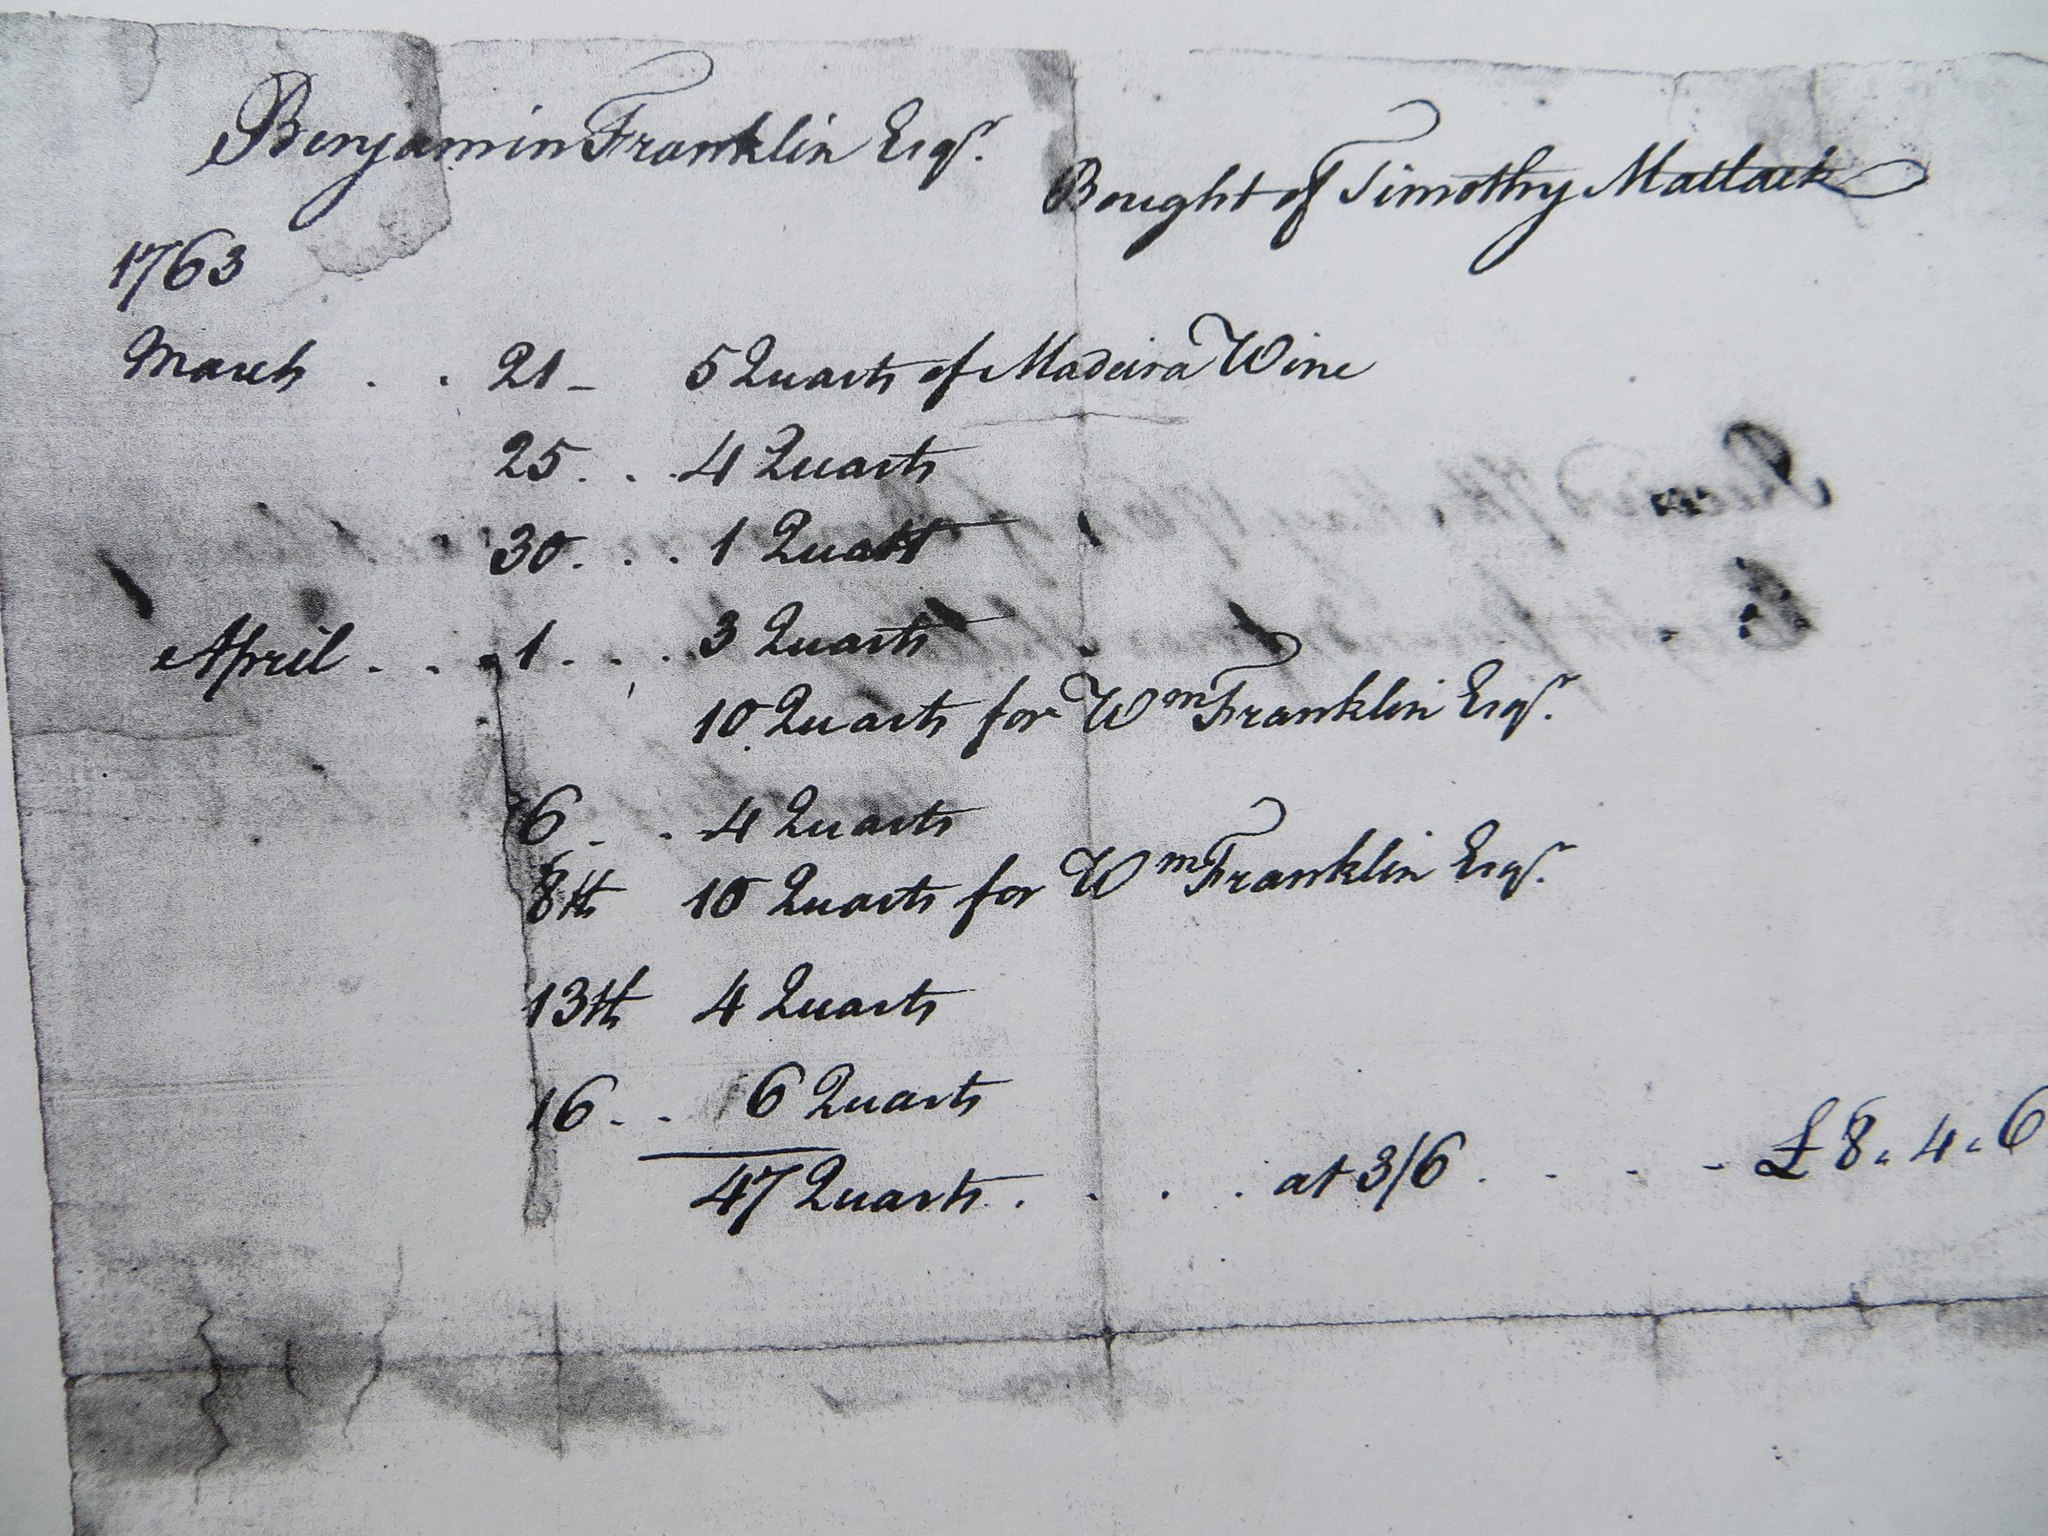 Benjamin Franklin Esqr.
Bought of Timothy Matlack
1763
March . . 21 - 5 Quarts of Madeira Wine
25 . . . 4 Quarts
30 . . . 1 Quart
April . . . 1 . . . 3 Quarts
10 Quarts for Wm Franklin Esqr.
6 . . 4 Quarts
8th 10 Quarts for Wm Franklin Esqr.
13th 4 Quarts
16 . . 6 Quarts
47 Quarts . . . . at 3/6 . . . - £8.4.6